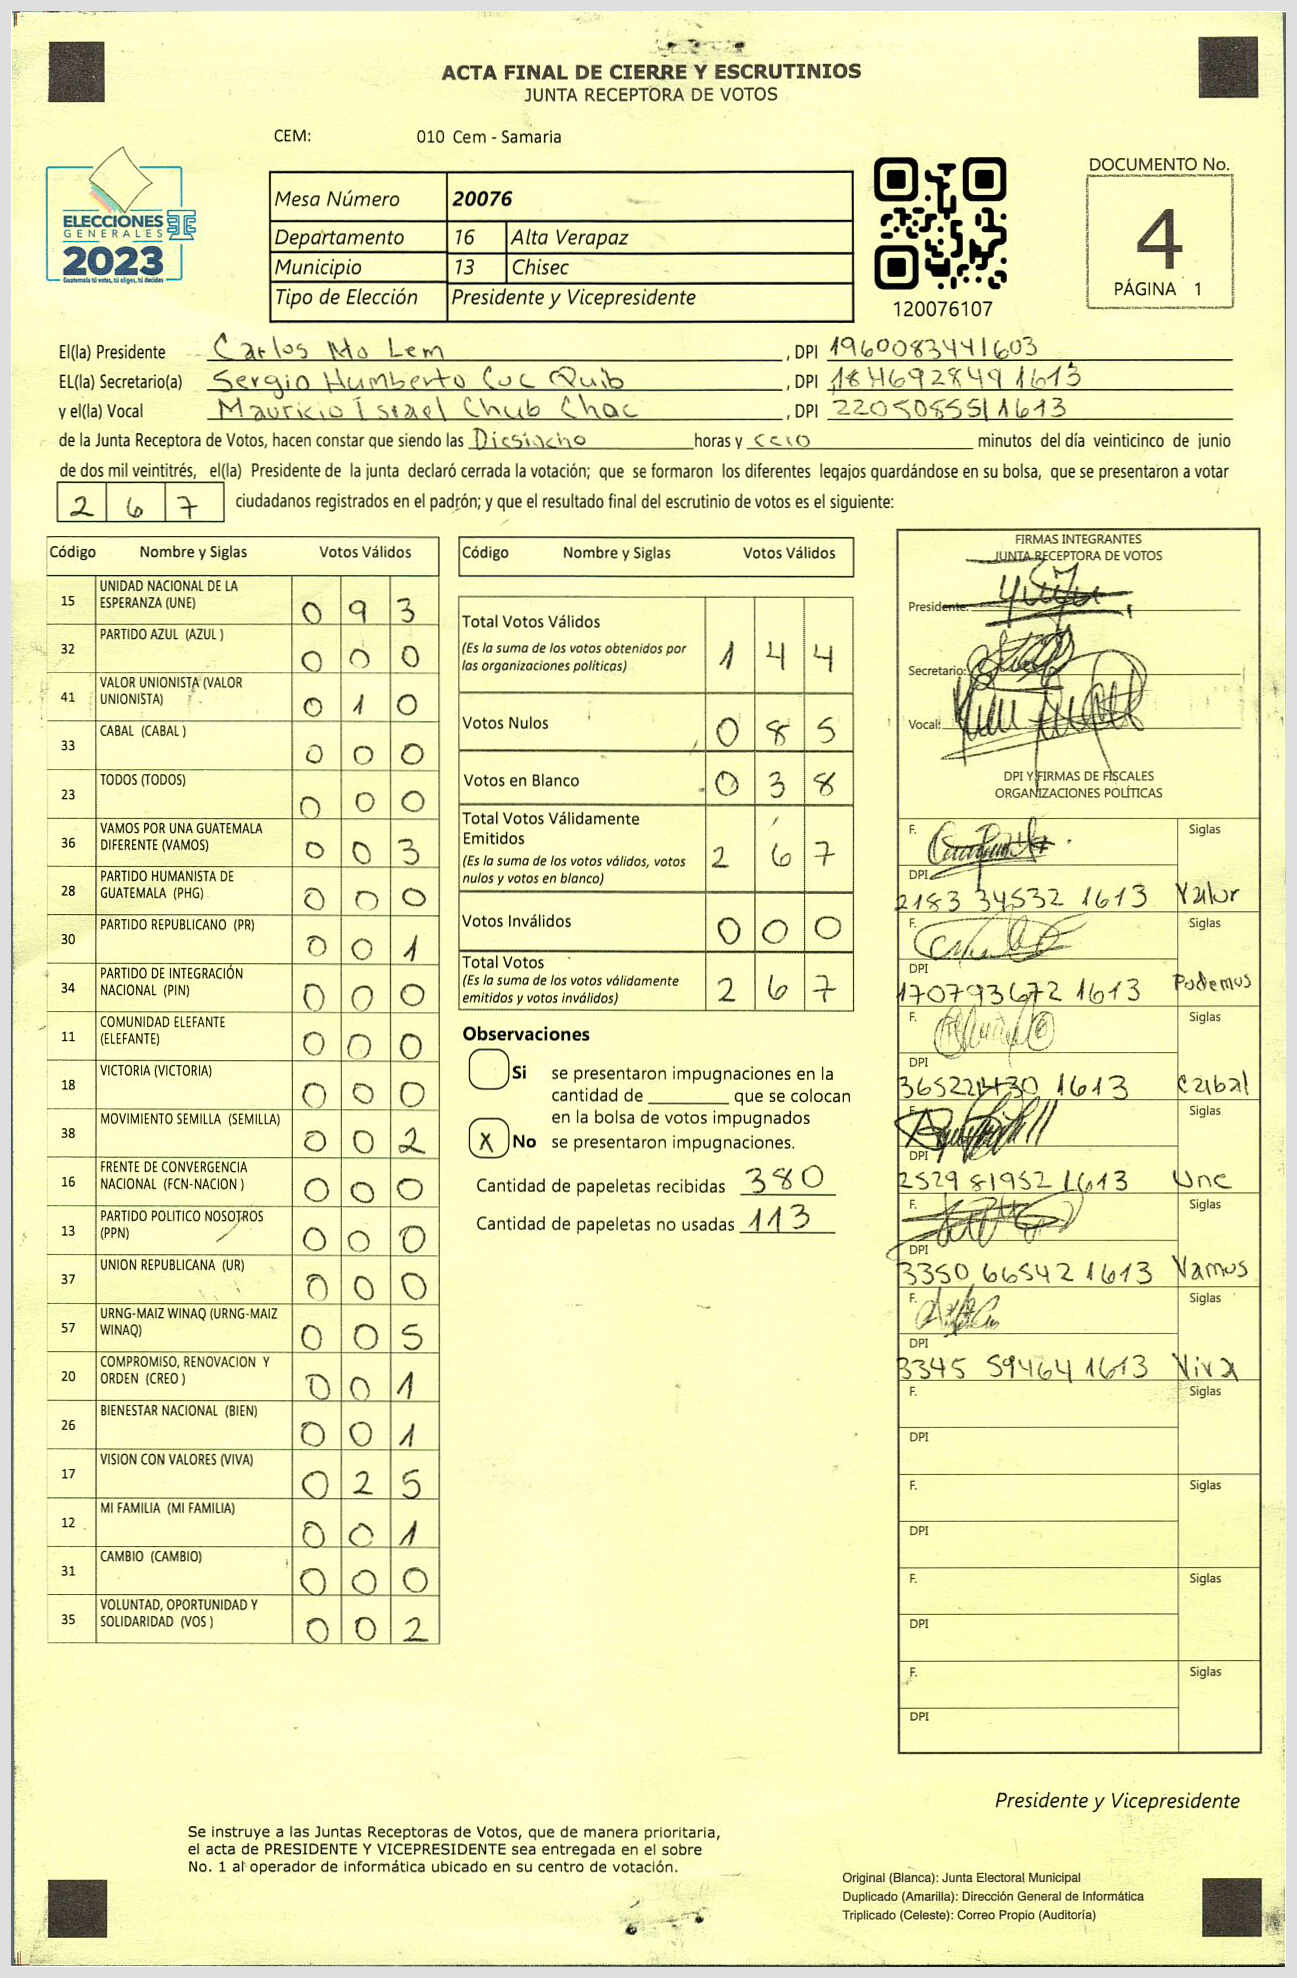 ACTA FINAL DE CIERRE Y ESCRUTINIOS
JUNTA RECEPTORA DE VOTOS
CEM: 010 Cem - Samaria
ELECCIONES
GENERALES
2023
Guatemala tú votas, tú eliges, tú decides
Mesa Número 20076
Departamento 16 Alta Verapaz
Municipio 13 Chisec
Tipo de Elección Presidente y Vicepresidente
120076107
DOCUMENTO No.
4
PÁGINA 1
El(la) Presidente Carlos Mo Lem , DPI 1960083441603
EL(la) Secretario(a) Sergio Humberto Cuc Quib , DPI 1846928491613
y el(la) Vocal Mauricio Israel Chub Choc , DPI 2205085511613
de la Junta Receptora de Votos, hacen constar que siendo las Diesiocho horas y cero minutos del día veinticinco de junio
de dos mil veintitrés, el(la) Presidente de la junta declaró cerrada la votación; que se formaron los diferentes legajos guardándose en su bolsa, que se presentaron a votar
267 ciudadanos registrados en el padrón; y que el resultado final del escrutinio de votos es el siguiente:
Código Nombre y Siglas Votos Válidos
15 UNIDAD NACIONAL DE LA
ESPERANZA (UNE) 0 9 3
32 PARTIDO AZUL (AZUL ) 0 0 0
41 VALOR UNIONISTA (VALOR
UNIONISTA) 0 1 0
33 CABAL (CABAL ) 0 0 0
23 TODOS (TODOS) 0 0 0
36 VAMOS POR UNA GUATEMALA
DIFERENTE (VAMOS) 0 0 3
28 PARTIDO HUMANISTA DE
GUATEMALA (PHG) 0 0 0
30 PARTIDO REPUBLICANO (PR) 0 0 1
34 PARTIDO DE INTEGRACIÓN
NACIONAL (PIN) 0 0 0
11 COMUNIDAD ELEFANTE
(ELEFANTE) 0 0 0
18 VICTORIA (VICTORIA) 0 0 0
38 MOVIMIENTO SEMILLA (SEMILLA) 0 0 2
16 FRENTE DE CONVERGENCIA
NACIONAL (FCN-NACION ) 0 0 0
13 PARTIDO POLITICO NOSOTROS
(PPN) 0 0 0
37 UNION REPUBLICANA (UR) 0 0 0
57 URNG-MAIZ WINAQ (URNG-MAIZ
WINAQ) 0 0 5
20 COMPROMISO, RENOVACION Y
ORDEN (CREO ) 0 0 1
26 BIENESTAR NACIONAL (BIEN) 0 0 1
17 VISION CON VALORES (VIVA) 0 2 5
12 MI FAMILIA (MI FAMILIA) 0 0 1
31 CAMBIO (CAMBIO) 0 0 0
35 VOLUNTAD, OPORTUNIDAD Y
SOLIDARIDAD (VOS ) 0 0 2
Código Nombre y Siglas Votos Válidos
Total Votos Válidos
(Es la suma de los votos obtenidos por
las organizaciones politicas) 1 4 4
Votos Nulos 0 8 5
Votos en Blanco 0 3 8
Total Votos Válidamente
Emitidos
(Es la suma de los votos válidos, votos
nulos y votos en blanco) 2 6 7
Votos Inválidos 0 0 0
Total Votos
(Es la suma de los votos válidamente
emitidos y votos inválidos) 2 6 7
Observaciones
Si se presentaron impugnaciones en la
cantidad de ________ que se colocan
en la bolsa de votos impugnados
X No se presentaron impugnaciones.
Cantidad de papeletas recibidas 380
Cantidad de papeletas no usadas 113
FIRMAS INTEGRANTES
JUNTA RECEPTORA DE VOTOS
Presidente:
Secretario:
Vocal:
DPI Y FIRMAS DE FISCALES
ORGANIZACIONES POLÍTICAS
F. Siglas
DPI
2183 34532 1613 Valor
F. Siglas
DPI
170793672 1613 Podemos
F. Siglas
DPI
365221430 1613 Cabal
F. Siglas
DPI
2529 81952 1613 Une
F. Siglas
DPI
3350 66542 1613 Vamos
F. Siglas
DPI
3345 59464 1613 Viva
F. Siglas
DPI
F. Siglas
DPI
F. Siglas
DPI
F. Siglas
DPI
Presidente y Vicepresidente
Se instruye a las Juntas Receptoras de Votos, que de manera prioritaria,
el acta de PRESIDENTE Y VICEPRESIDENTE sea entregada en el sobre
No. 1 al operador de informática ubicado en su centro de votación.
Original (Blanca): Junta Electoral Municipal
Duplicado (Amarilla): Dirección General de Informática
Triplicado (Celeste): Correo Propio (Auditoría)